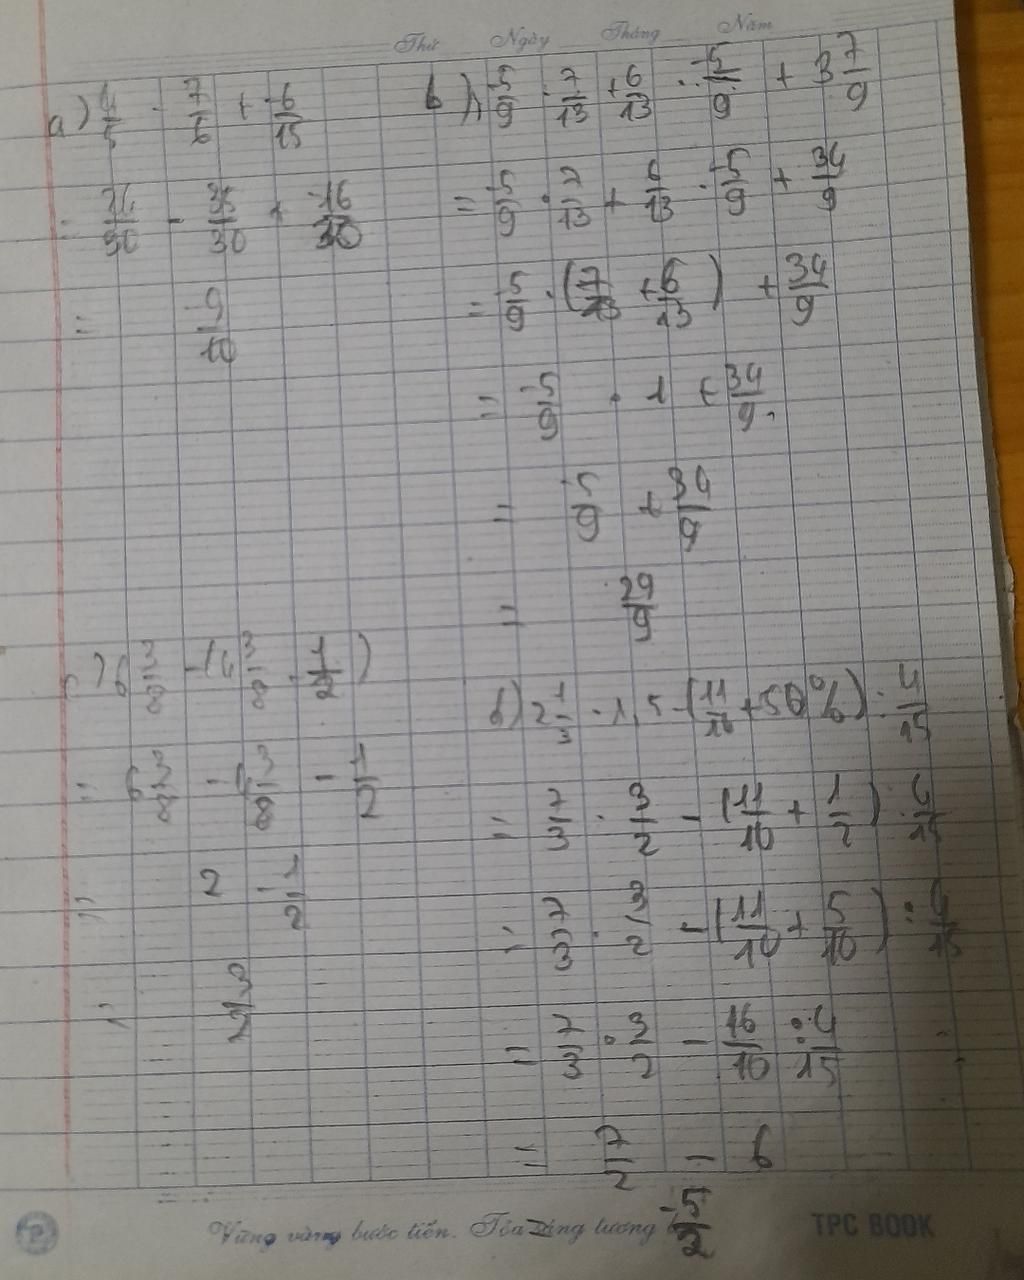 Thứ Ngày Tháng Năm
a) 4/5 - 7/6 + -6/15
= 24/30 - 35/30 + -16/30
= -9/10
b) -5/9 . 7/13 + 6/13 . -5/9 + 3 7/9
= -5/9 . 7/13 + 6/13 . -5/9 + 34/9
= -5/9 . (7/13 + 6/13) + 34/9
= -5/9 . 1 + 34/9
= -5/9 + 34/9
= 29/9
c) 6 3/8 - (4 3/8 + 1/2)
= 6 3/8 - 4 3/8 - 1/2
= 2 - 1/2
= 3/2
d) 2 1/3 . 1,5 - (11/10 + 50%) : 4/15
= 7/3 . 3/2 - (11/10 + 1/2) : 4/15
= 7/3 . 3/2 - (11/10 + 5/10) : 4/15
= 7/3 . 3/2 - 16/10 : 4/15
= 7/2 - 6
-5/2
Vững vàng bước tiến. Tỏa sáng tương
TPC BOOK